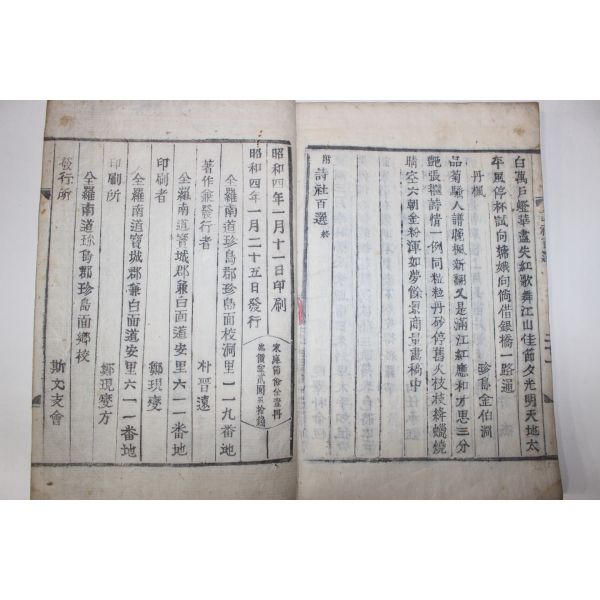 白萬戶燈華盡失紅歌舞江山佳節夕光明天地太
平風停杯試向嫦娥向倘借銀橋一路通
丹楓 珍島金伯澗
品菊騷人譜晩楓新翻又是滿江紅應和才思三分
艶張擅詩情一例同粒粒丹砂停舊火枝枝絳蠟燒
晴空六朝金粉渾如夢餘景商量畵稿中
附詩社百選 終
昭和四年一月十一日印刷
昭和四年一月二十五日發行
全羅南道珍島郡珍島面校洞里一一九番地
著作兼發行者 朴晋遠
全羅南道寶城郡兼白面道安里六一一番地
印刷者 鄭現燮
全羅南道寶城郡兼白面道安里六一一番地
印刷所 鄭現燮方
全羅南道珍島郡珍島面鄉校
發行所 斯文支會